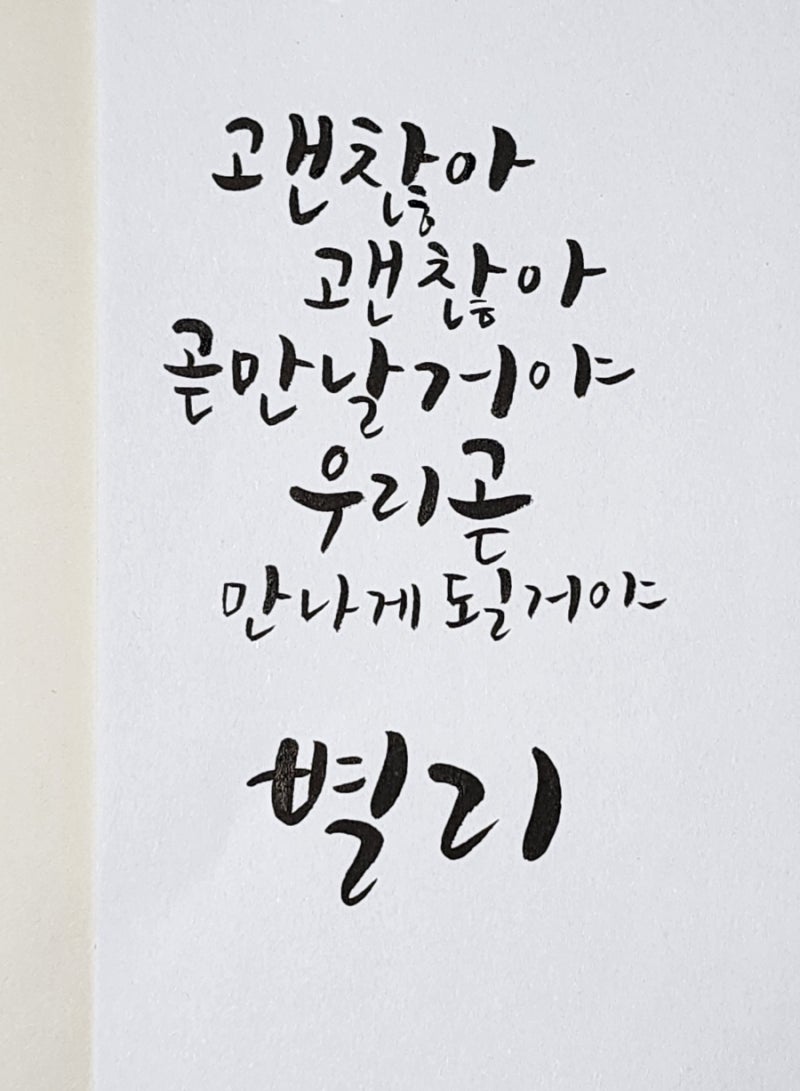 괜찮아
괜찮아
곧만날거야
우리곧
만나게 될거야
별리